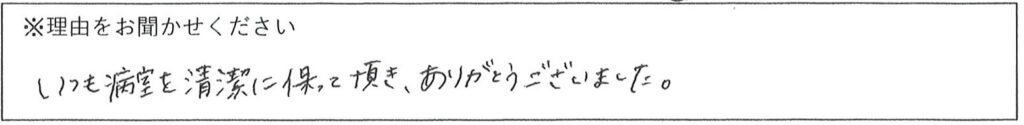 ※理由をお聞かせください
いつも病室を清潔に保って頂き、ありがとうございました。